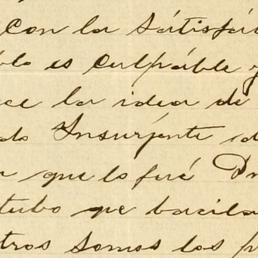 con la sátisfá
blo es culpáble y
ce la idea de
do Insurjente
que lo fué
tubo que bacila
tros somos los p